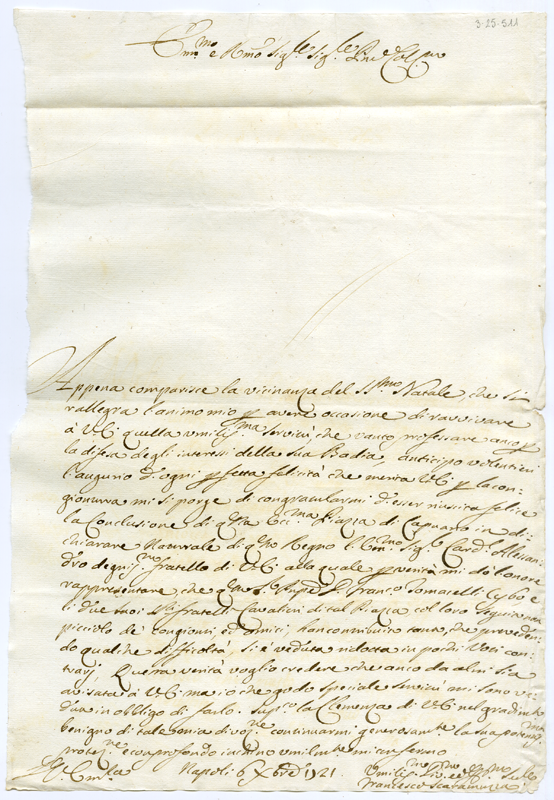 3-25-511
Em.mo e R.mo Sig.re Sig.re P.ne Col.mo
Appena comparisce la vicinanza del SS.mo Natale, che si
rallegra l'animo mio p avere occasione di ravvivare
à V.E. quella umilis.ma servitù che vanto professare anco p
la difesa degli interesi della sua Badia, anticipo volentieri
l'augurio d'ogni pfetta felicità che merita V.E. p la con-
gionturra mi si porge di congratularmi d'eser riuscito felice
la Conclusione di q.sta Ecc.ma Piazza di Capuano in di-
chiarare Naturale di q.sto Regno l'Em.mo Sig. Card. Alessan-
dro degnis.mo fratello di V.E. alla quale p verità mi dò l'onore
rappresentare che Franc.o Tomacelli Cybo e
li due miei fratelli Cavalieri di tal Piazza col loro
piccolo de' congionti ed amici, han contribuito tanto, che preveden-
do qualche difficoltà, si è veduta ridotta in pochi Voci con-
trarj. Questa verità voglio credere che anco da altri sia
avisata à V.E. ma io che godo speciale servitù mi sono ve-
duto in obbligo di farlo. Sup.co la Clemenza di V.E. nel gradim.to
benigno di tale continuarmi generosam.te la sua potentis.
protez.ne e con profondo inchino umilm.te mi confermo
Di V. Em.za Napoli 6 Xbre 1721.
Umilis.mo Div.mo ed Obl.mo Ser.
Francesco Scaramuzza